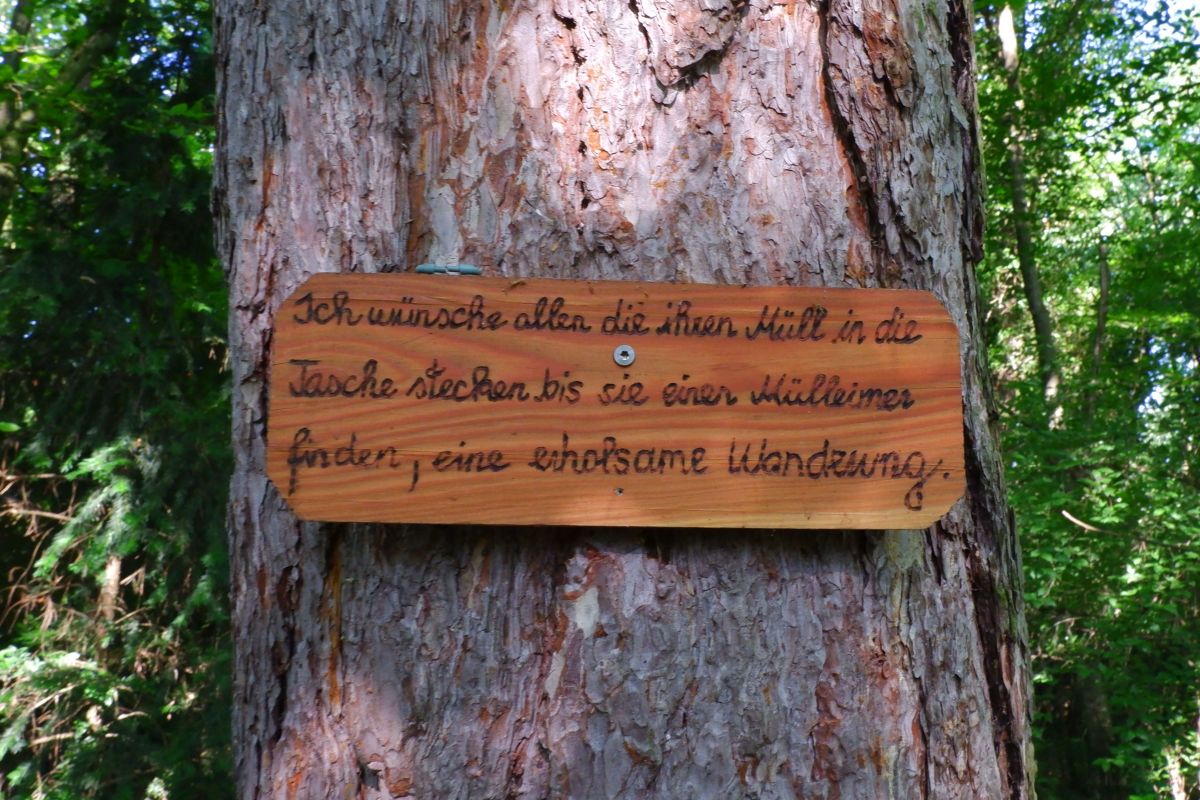 Ich wünsche allen die ihren Müll in die
Tasche stecken bis sie einen Mülleimer
finden, eine erholsame Wanderung.